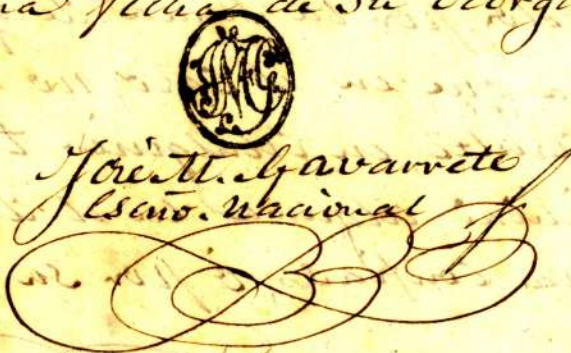 fecha de su otorga
JMG
José M. Gavarrete
Escno. Nacional
su